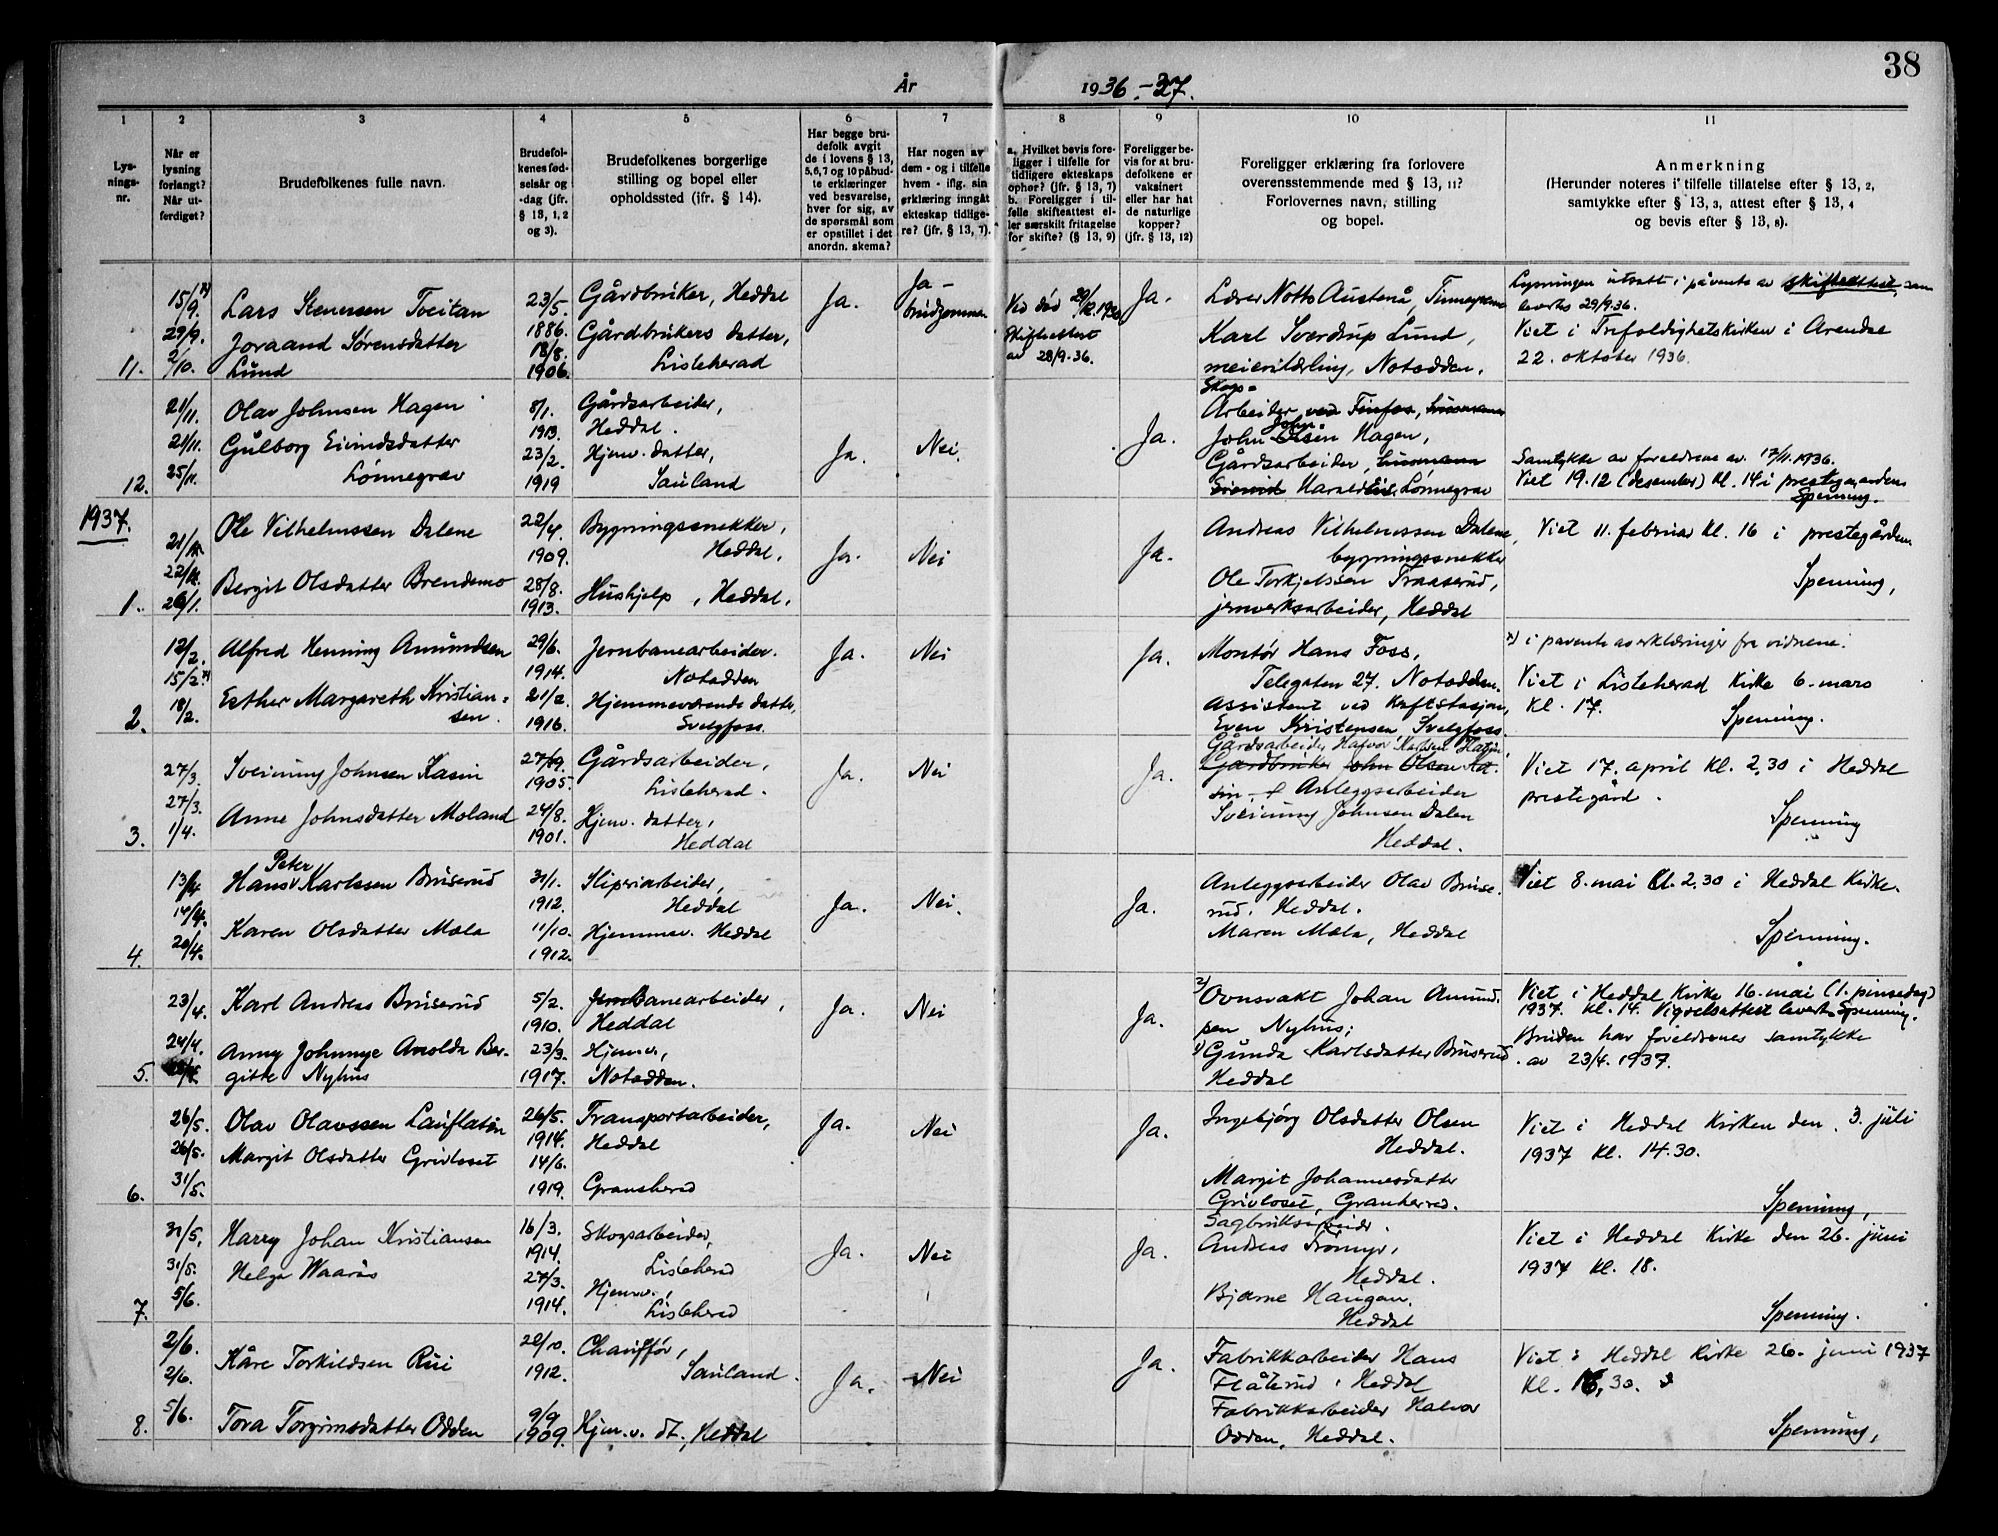 38
År 1936-37.
1
2
3
4
5
6
7
8
9
10
11
Lys-
nings-
nr.
Når er
lysning
forlangt?
Når ut-
ferdiget?
Brudefolkenes fulle navn.
Brudefol-
kenes fød-
selsår og
-dag (jfr.
§ 13, 1, 2
og 3).
Brudefolkenes borgerlige
stilling og bopel eller
opholdssted (jfr. § 14).
Har begge bru-
defolk avgit
de i lovens § 13,
5,6,7 og 10 påbud-
te erklæringer
ved besvarelse,
hver for sig, av
de spørsmål som
er opstillet i det
anordn. skema?
Har nogen av
dem - og i tilfelle
hvem - iflg. sin
erklæring inngåt
ekteskap tidlige-
re? (jfr. § 13, 7).
a. Hvilket bevis fore-
ligger i tilfelle for
tidligere ekteskaps
ophør? (jfr. § 13, 7)
b. Foreligger i til-
felle skifteattest el-
ler særskilt fritagelse
for skifte? (§ 13, 9)
Foreligger be-
vis for at bru-
defolkene er
vaksinert
eller har hat
de naturlige
kopper?
(jfr. § 13, 12)
Foreligger erklæring fra forlovere
overensstemmende med § 13, 11?
Forlovernes navn, stilling
og bopel.
Anmerkning
(Herunder noteres i tilfelle tillatelse efter § 13, 2,
samtykke efter § 13, 3, attest efter § 13, 4
og bevis efter § 13, 8).
11.
15/9. x)
29/9.
2/10.
Lars Stenersen Tveitan
Joraand Sørensdatter
Lund
23/5.
1886.
18/8.
1906.
Gårdbruker, Heddal
Gårdbrukers datter,
Lisleherad
Ja.
Ja -
brudgommen
Ved død 29/12.1930
Skifteattest
av 28/9.36.
Ja.
Lærer Notto Austenå,
Karl Sverdrup Lund,
meierilærling, Notodden.
Lysningen utsatt i påvente av skifteattest, som
levertes 29/9.36.
Viet i Trefoldighetskirken i Arendal
22. oktober 1936.
12.
21/11.
21/11.
25/11.
Olav Johnsen Hagen
Gulborg Eivindsdatter
Lønnegrav
8/1.
1913.
23/2.
1919
Gårdsarbeider,
Heddal.
Hjemv. datter,
Sauland
Ja.
Nei.
Ja.
Skogs-
Arbeider ved Tinfos,
John John- Olsen Hagen,
Gårdsarbeider,
Lønnegrav
Samtykke av foreldrene av 17/11.1936.
Viet 19.12 (desember) kl. 14 i prestegaarden
Spenning.
1937.
1.
22/12.
26/1.
Ole Vilhelmssen Dalene
Bergit Olsdatter Brendemo
22/4.
1909.
28/8.
1913.
Bygningssnekker,
Heddal,
Hushjelp, Heddal.
Ja.
Nei
Ja.
Andreas Vilhelmssen Dalene,
bygningssnekker
Ole Torkjelssen Traaserud,
jernverksarbeider, Heddal
Viet 11. februar kl. 16 i prestegården.
Spenning,
2.
12/2.
15/2. x)
18/2.
Alfred Henning Amundsen
Esther Margareth Kristian-
sen.
29/6.
1914.
21/2.
1916.
Jernbanearbeider.
Notodden
Hjemmeværende datter,
Svelgfoss.
Ja.
Nei
Ja.
Montør Hans Foss,
Telegaten 27. Notodden.
Assistent ved Kraftstasjon,
Even Kristensen, Svelgfoss
x) i påvente av erklæringer fra vidnene.
Viet i Lisleherad Kirke 6. mars
kl. 17.
Spenning.
3.
27/3.
27/3.
1/4.
Sveinung Johnsen Kasin
Anne Johnsdatter Moland
27/9.
1905.
24/8.
1901.
Gårdsarbeider,
Lisleherad.
Hjemv. datter,
Heddal
Ja.
Nei
Ja.
Gårdsarbeider Halvor Karlsen
Gårdbruker John Olsen Ka-
sin, Anleggsarbeider
Sveinung Johnsen Dalen
Heddal.
Viet 17. april kl. 2,30 i Heddal
prestegård.
Spenning
4.
13/4
14/4.
20/4.
Hans Peter Karlssen Bruserud
Karen Olsdatter Mæla
31/1.
1912.
11/10.
1912.
Sliperiarbeider,
Heddal
Hjemmev. Heddal
Ja.
Nei.
Ja.
Anleggsarbeider Olav Bruse-
rud. Heddal.
Maren Mæla, Heddal
Viet 8. mai kl. 2.30 i Heddal Kirke.
Spenning.
5.
23/4.
24/4.
Karl Andreas Bruserud
Anny Johnnye Arolda Ber-
gitte Nyhus
5/2.
1910.
23/3.
1917.
Jernbanearbeider,
Heddal
Hjemv.,
Notodden.
Ja.
Nei
Ja.
2) Ovnsvakt Johan Amund-
sen Nyhus;
1) Gunda Karlsdatter Bruserud
Heddal
Viet i Heddal Kirke 16. mai (1. pinsedag)
1937. kl. 14. Vigselsattest levert. Spenning.
Bruden har foreldrenes samtykke
av 23/4. 1937.
6.
26/5.
26/5.
31/5.
Olav Olavssen Lauflatin
Margit Olsdatter Grivleset
26/5.
1914.
14/6.
1919.
Transportarbeider,
Heddal
Gransherad
Ja.
Nei
Ja.
Ingebjørg Olsdatter Olsen
Heddal.
Margit Johannesdatter
Grivleset, Granherred.
Viet i Heddal Kirken den 3. juli
1937 kl. 14.30.
Spenning,
7.
31/5.
31/5.
5/6.
Harry Johan Kristiansen
Helga Waarås
16/3.
1914.
27/3.
1914.
Skogsarbeider,
Lisleherad
Hjemv.,
Lisleherad
Ja.
Nei
Ja.
Sagbruksarbeider.
Andreas Tromyr,
Heddal.
Bjarne Haugan.
Heddal
Viet i Heddal Kirke den 26. juni
1937 kl. 18.
Spenning.
8.
2/6.
2/6.
5/6.
Kåre Torkildsen Rui
Tora Torgrimsdatter Odden
20/10.
1912.
9/9
1909.
Chauffør,
Sauland.
Hjem.v. dt., Heddal
Ja.
Nei
Ja.
Fabrikkarbeider Hans
Flåterud, Heddal
Fabrikkarbeider Halvor
Odden, Heddal.
Viet i Heddal Kirke 26. juni 1937
Kl. 16,30.
Spenning,